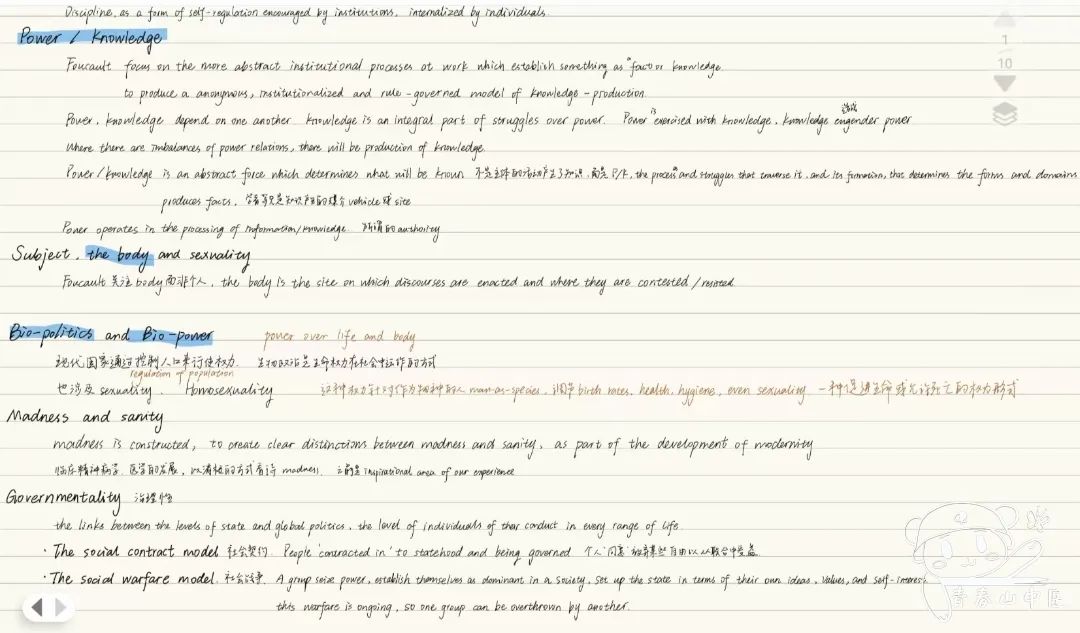 Discipline, as a form of self-regulation encouraged by institutions, internalized by individuals.
Power / Knowledge
Foucault focus on the more abstract institutional processes at work which establish something as "fact or knowledge.
to produce a anonymous, institutionalized and rule-governed model of knowledge-production.
Power, knowledge depend on one another knowledge is an integral part of struggles over power. Power is exercised with knowledge, knowledge engender power
where there are imbalances of power relations, there will be production of knowledge.
Power/knowledge is an abstract force which determines what will be known 不是主体的活动产生了知识, 而是 P/K, the process and struggles that traverse it, and its formation, that determines the forms and domains
produces facts, 学者等只是知识产生的媒介 vehicle 或 site
Power operates in the processing of information/knowledge 所谓的 authority
Subject, the body and sexuality
Foucault 关注 body 而非个人, the body is the site on which discourses are enacted and where they are contested / resisted
Bio-politics and Bio-power power over life and body
现代国家通过控制人口来行使权力. 生物政治是生命权力在社会中运作的方式
regulation of population
也涉及 sexuality, Homosexuality 这种权力针对作为物种的人 man-as-species, 调节 birth rates, health, hygiene, even sexuality 一种促进生命或允许死亡的权力形式
Madness and sanity
madness is constructed, to create clear distinctions between madness and sanity, as part of the development of modernity
临床精神病学, 医学的发展, 以消极的方式看待 madness. 之前是 inspirational area of our experience
Governmentality 治理性
the links between the levels of state and global politics, the level of individuals of their conduct in every range of life.
· The social contract model 社会契约. People 'contracted in' to statehood and being governed 个人"同意"放弃某些自由以从联合中受益
· The social warfare model. 社会战争. A group seize power, establish themselves as dominant in a society, set up the state in terms of their own ideas, values, and self-interes
this warfare is ongoing, so one group can be overthrown by another.
1
10